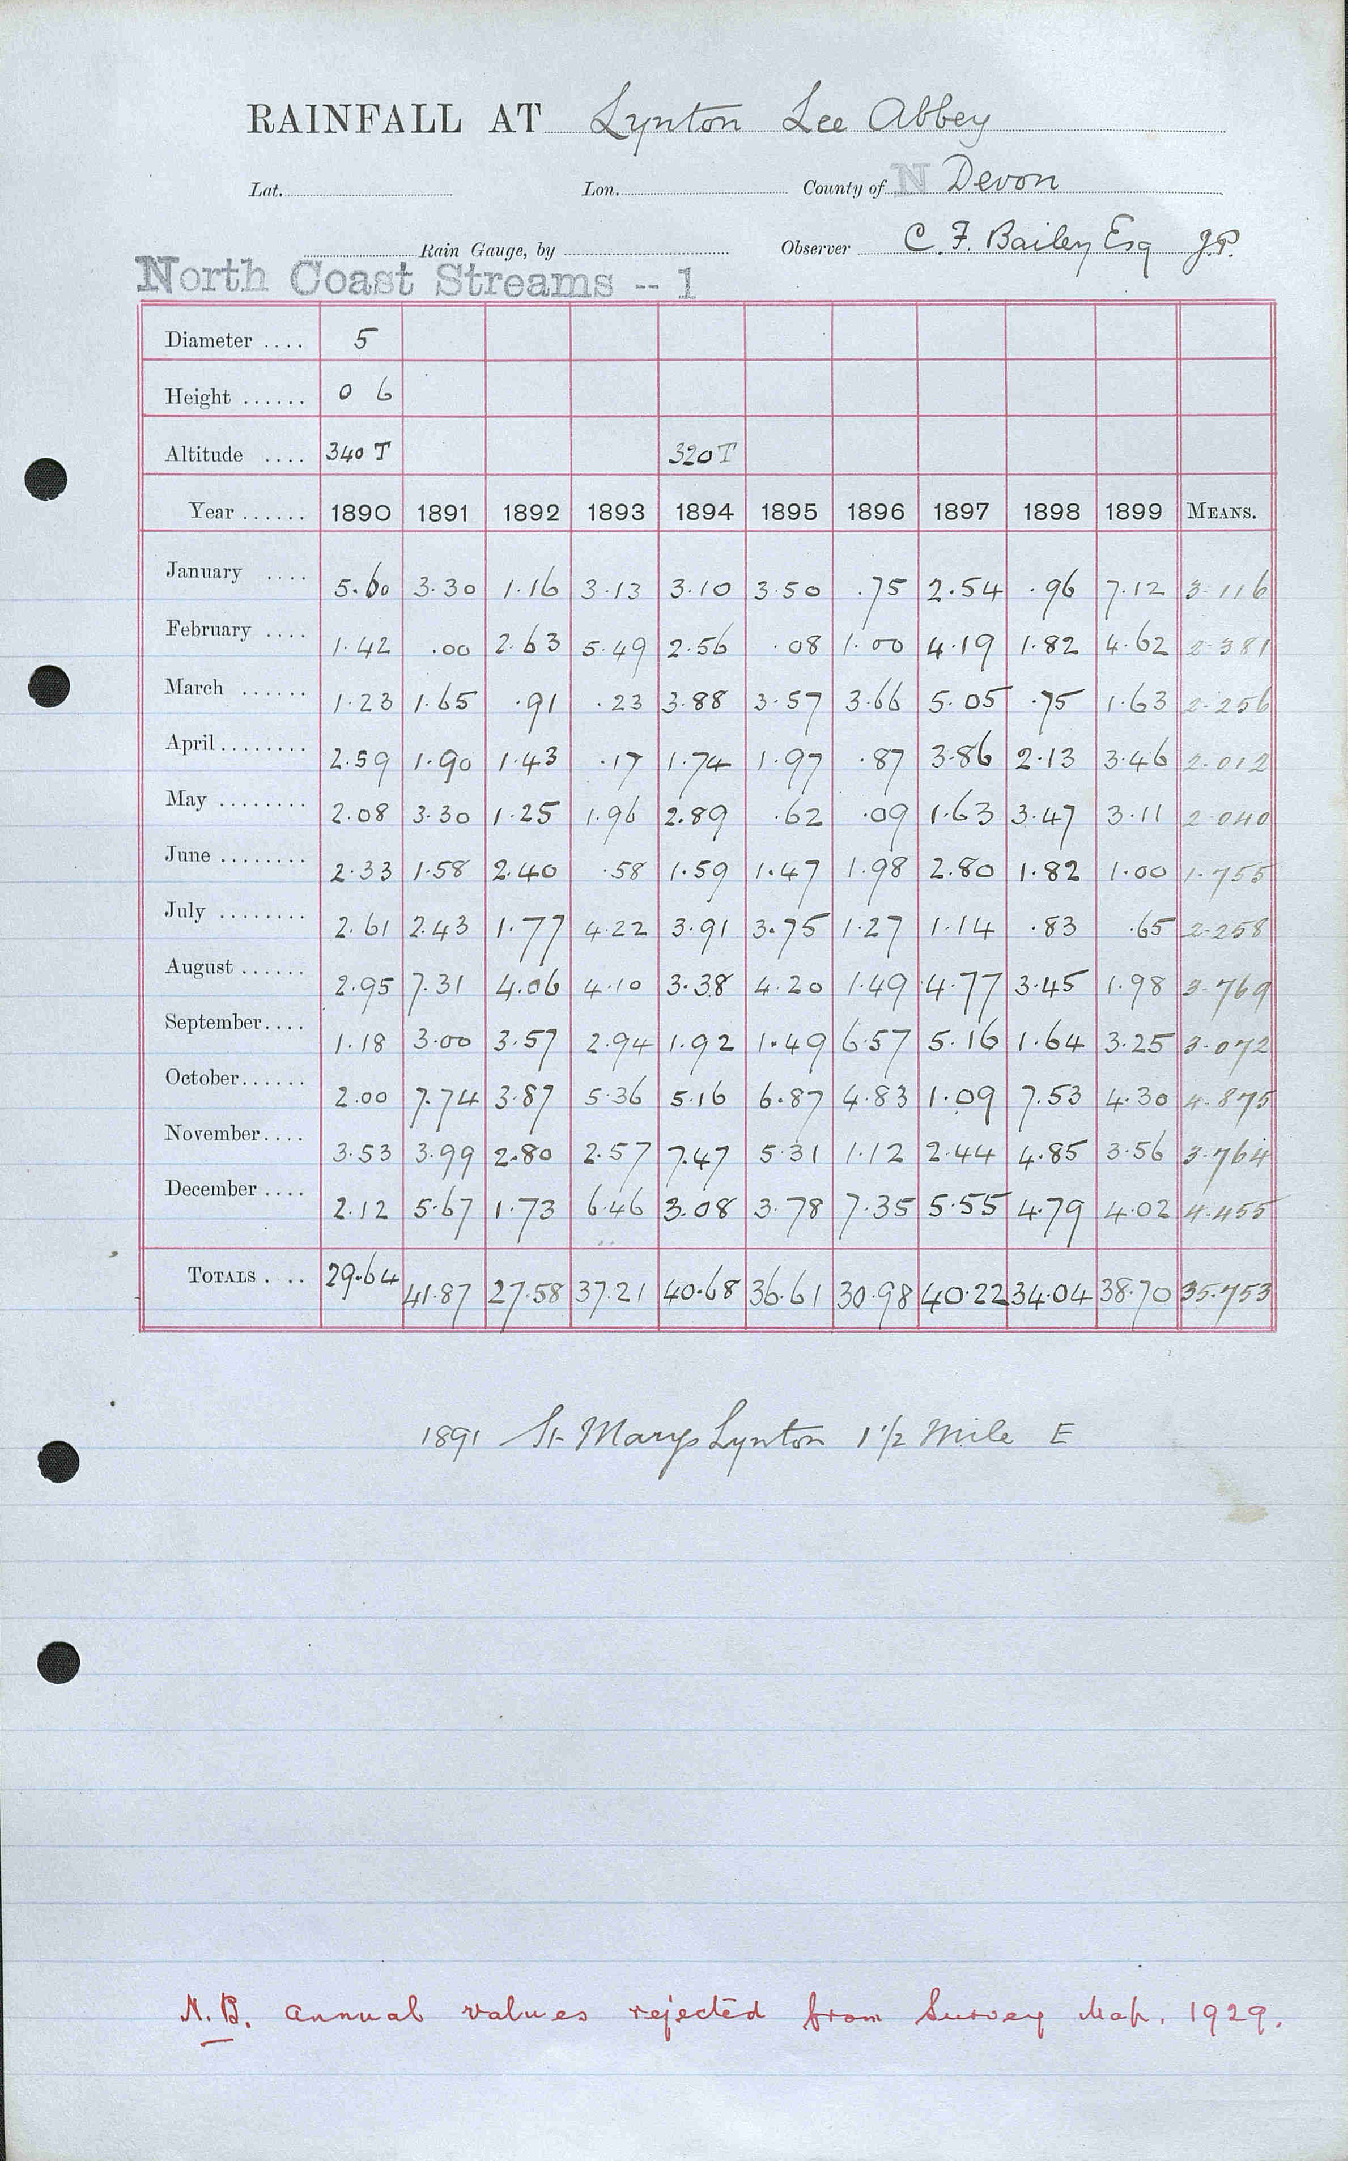 RAINFALL AT Lynton Lee Abbey
Lat. Lon. County of N Devon
Rain Gauge, by Observer C. F. Bailey Esq J.P.
North Coast Streams -- 1
Diameter .... 5
Height ...... 0 6
Altitude .... 340 T 320 T
Year ...... 1890 1891 1892 1893 1894 1895 1896 1897 1898 1899 MEANS.
January .... 5.60 3.30 1.16 3.13 3.10 3.50 .75 2.54 .96 7.12 3.116
February .... 1.42 .00 2.63 5.49 2.56 .08 1.00 4.19 1.82 4.62 2.381
March ...... 1.23 1.65 .91 .23 3.88 3.57 3.66 5.05 .75 1.63 2.256
April ........ 2.59 1.90 1.43 .17 1.74 1.97 .87 3.86 2.13 3.46 2.012
May ........ 2.08 3.30 1.25 1.96 2.89 .62 .09 1.63 3.47 3.11 2.040
June ........ 2.33 1.58 2.40 .58 1.59 1.47 1.98 2.80 1.82 1.00 1.755
July ........ 2.61 2.43 1.77 4.22 3.91 3.75 1.27 1.14 .83 .65 2.258
August ...... 2.95 7.31 4.06 4.10 3.38 4.20 1.49 4.77 3.45 1.98 3.769
September.... 1.18 3.00 3.57 2.94 1.92 1.49 6.57 5.16 1.64 3.25 3.072
October...... 2.00 7.74 3.87 5.36 5.16 6.87 4.83 1.09 7.53 4.30 4.875
November.... 3.53 3.99 2.80 2.57 7.47 5.31 1.12 2.44 4.85 3.56 3.764
December .... 2.12 5.67 1.73 6.46 3.08 3.78 7.35 5.55 4.79 4.02 4.455
TOTALS . .. 29.64 41.87 27.58 37.21 40.68 36.61 30.98 40.22 34.04 38.70 35.753
1891 St Marys Lynton 1 1/2 Mile E
N.B. annual values rejected from Survey Map. 1929.